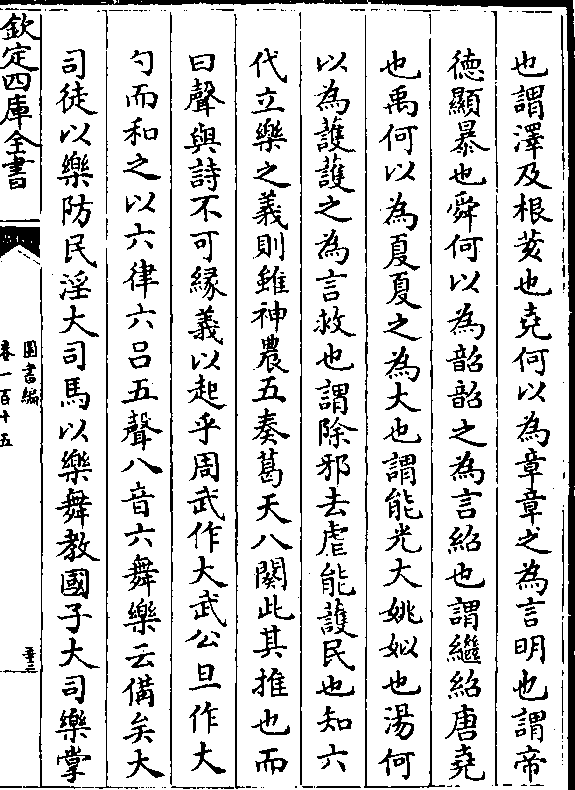 也謂澤及根荄也堯何以為章章之為言明也謂帝
徳顯暴也舜何以為韶韶之為言紹也謂繼紹唐堯
也禹何以為夏夏之為大也謂能光大姚姒也湯何
以為護護之為言救也謂除邪去虐能護民也知六
代立樂之義則雖神農五奏葛天八闋此其推也而
曰聲與詩不可縁義以起乎周武作大武公旦作大
勺而和之以六律六呂五聲八音六舞樂云備矣大
司徒以樂防民淫大司馬以樂舞教國子大司樂掌
欽定四庫全書
圖書編
卷一百十五